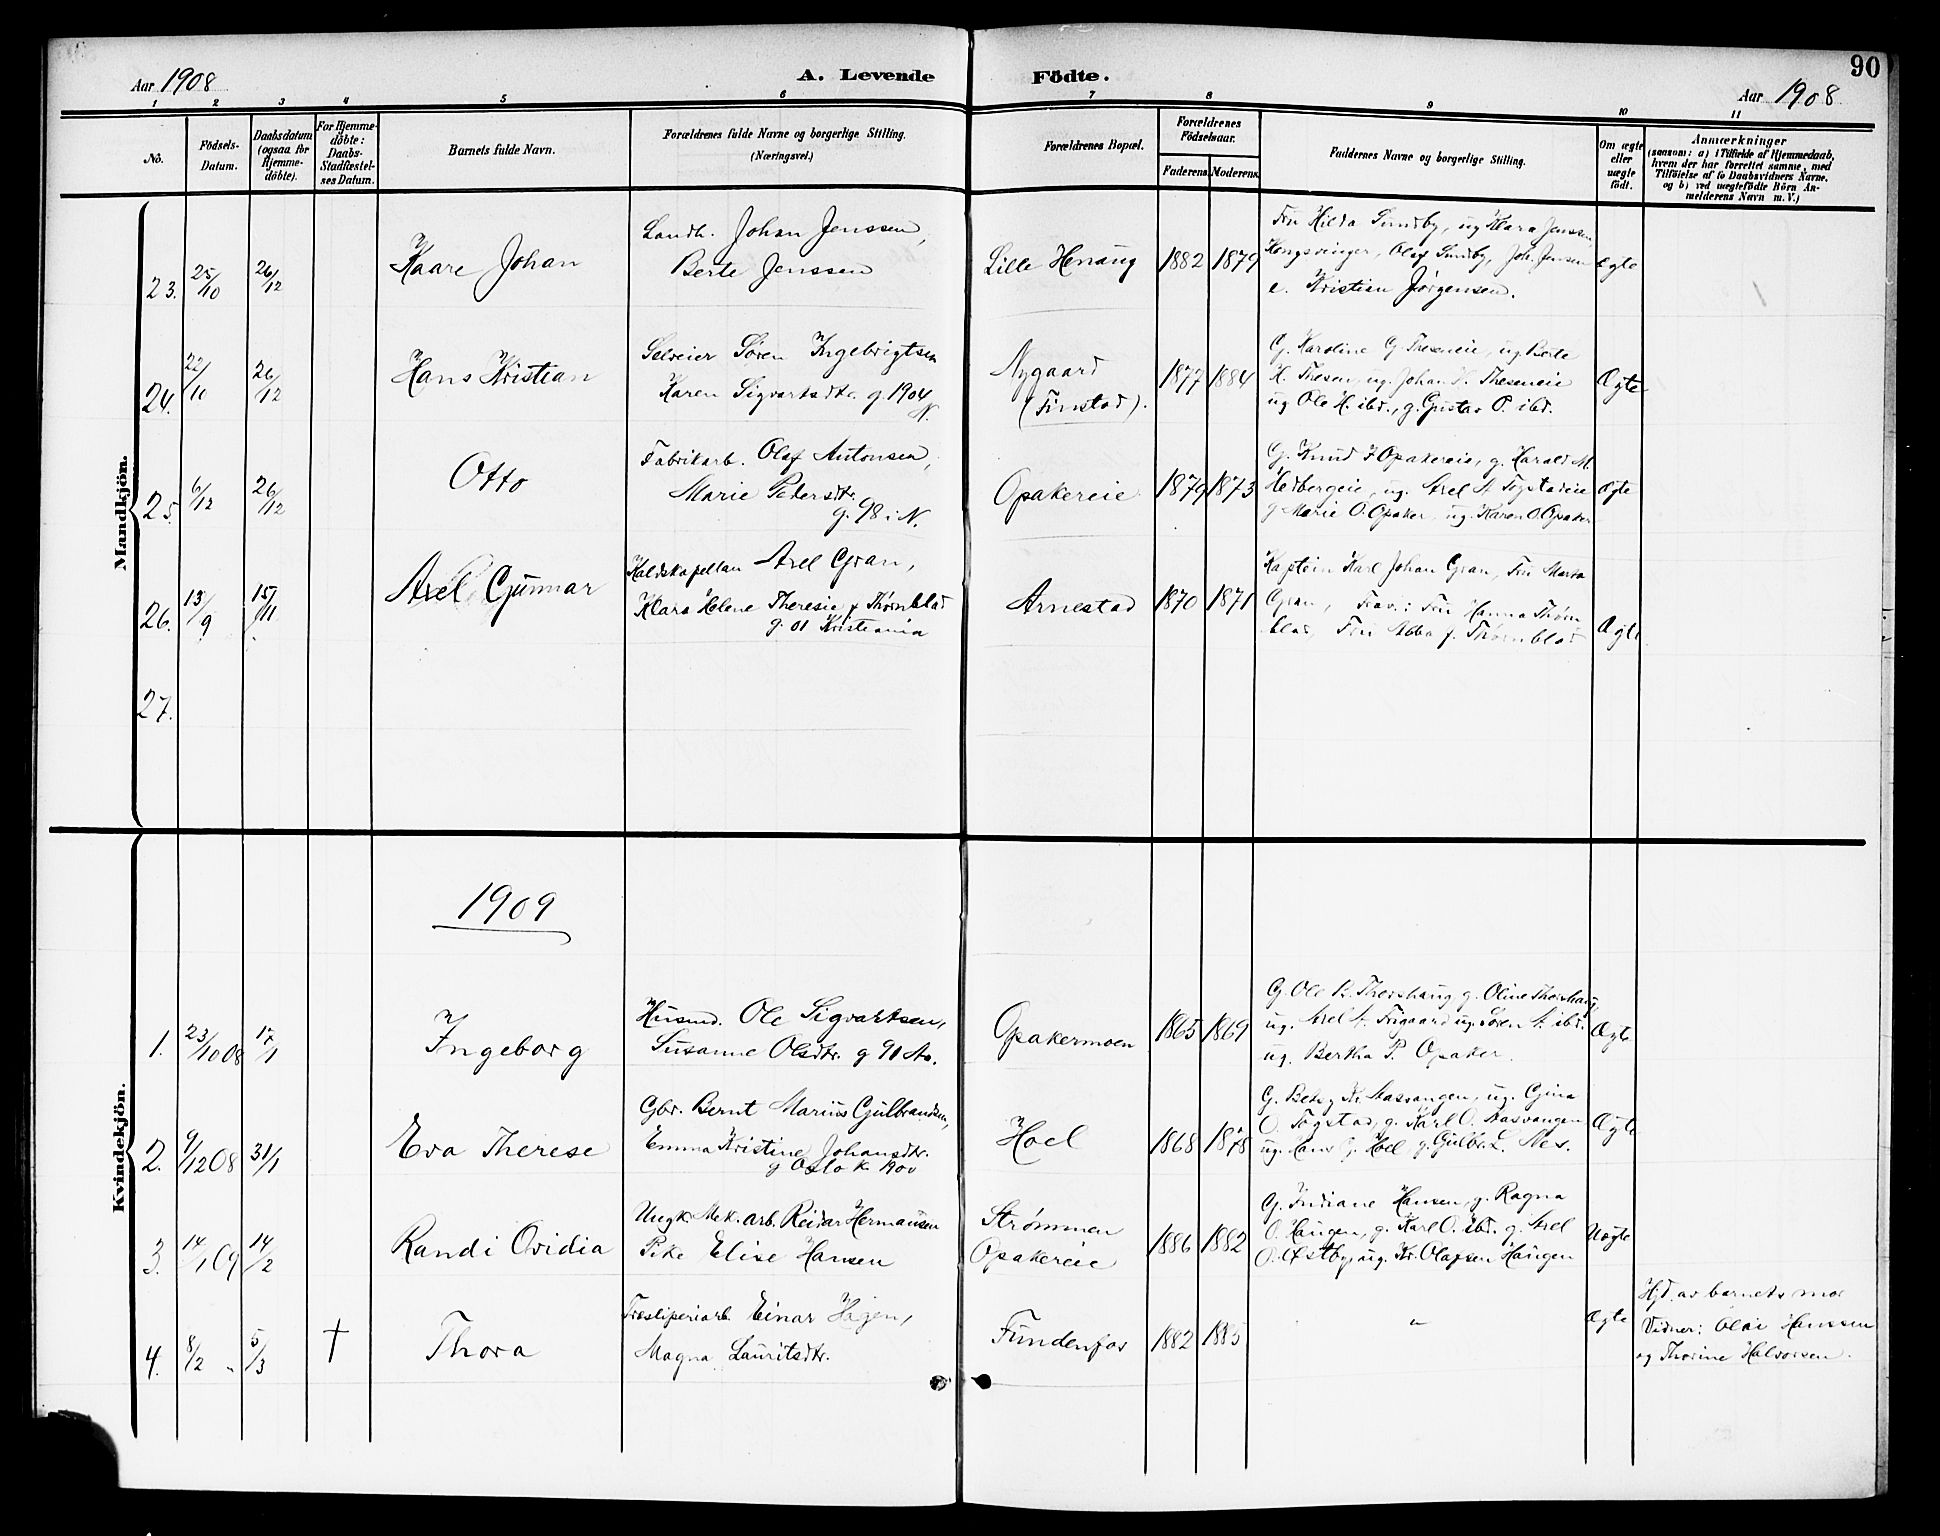 90
Aar 1908
A. Levende Födte.
Aar 1908
1 2 3 4 5 6 7 8 9 10 11
No.
Födsels-
Datum.
Daabsdatum
(ogsaa for
Hjemme-
döbte).
For Hjemme-
döbte:
Daabs-
Stadfæstel-
ses Datum.
Barnets fulde Navn.
Forældrenes fulde Navne og borgerlige Stilling.
(Næringsvei.)
Forældrenes Bopæl.
Forældrenes
Födselsaar.
Faderens. Moderens.
Faddernes Navne og borgerlige Stilling.
Om ægte
eller
uægte
födt.
Anmærkninger
(saasom: a) i Tilfælde af Hjemmedaab,
hvem der har forrettet samme, med
Tilföielse af to Daabsvidners Navne.
og b) ved uægtefödte Börn An-
melderens Navn m. V.)
Mandkjön.
23. 25/10 26/12
Kaare Johan
Landh. Johan Jenssen,
Berte Jenssen
Lille Henaug
1882 1879
Fru Hilda Sundby, ug Klara Jenssen
Kongsvinger, Olaf Sundby, Joh. Jensen
e. Kristian Jørgensen.
Ægte
24. 22/10 26/12
Hans Kristian
Selveier Søren Ingebrigtsen
Karen Sigvartsdtr. g. 1904
N.
Nygaard
(Finstad).
1877 1884
G. Karoline G Theseneie, ug. Berte
H. Thesen, ug. Johan H. Theseneie
ug Ole H. ibd., g. Gustav P. ibd.
Ægte
25. 6/12 26/12
Otto
Fabrikarb. Olaf Antonsen,
Marie Petersdtr.
g. 98 i N.
Opakereie
1879 1873
G. Knud J Opakereie, g. Harald M.
Hedbergeie, ug. Axel A Togstadeie
g Marie O. Opaker, ug. Karen O. Opaker
Ægte
26. 13/9 15/11
Axel Gunnar
Kaldskapellan Axel Gran,
Klara Helene Theresie f Thørnblad
g. 01 Kristiania
Arnestad
1870 1871
Kaptein Karl Johan Gran, Fru Maria
Gran, Frav.: Fru Hanna Thørn
blad, Fru Ebba f. Thørnblad
Ægte
27.
Kvindekjön.
1909
1. 23/10 08 17/1
Ingeborg
Husmd. Ole Sigvartsen,
Susanne Olsdtr. g 91 As.
Opakermoen
1865 1869
G. Ole K. Thorshaug g. Oline Thorshaug
ug. Axel A. Frigaard ug. Søren A. ibd.
ug. Bertha P. Opaker.
Ægte
2. 9/12 08 31/1
Eva Therese
Gbr. Bernt Marius Gulbrandsen,
Emma Kristine Johansdtr.
g Oslo k 1900
Hoel
1868 1878
G. Betsy Kr. Aasvangen, ug. Gina
O. Togstad, g. Karl O. Aasvangen
ug. Hans G. Hoel, g. Gulbr. L. Nes.
Ægte
3. 14/1 09 14/2
Randi Ovidia
Ungk. Mek. arb. Reidar Hermansen
Pike Elise Hansen
Strømmen
Opakereie
1886 1882
G. Indiane Hansen, g. Ragna
O. Haugen, g. Karl O. Ibd. g. Axel
O. Østby, ug. Kr. Olafsen Haugen
Uægte
4. 8/2 " 5/3 †
Thora
Træsliperiarb. Einar Hagen,
Magna Lauritsdtr.
Fundenfos
1882 1885
"
Ægte
Hjd. av barnets mor
Vidner: Olai Hanssen
og Thorine Halvorsen.